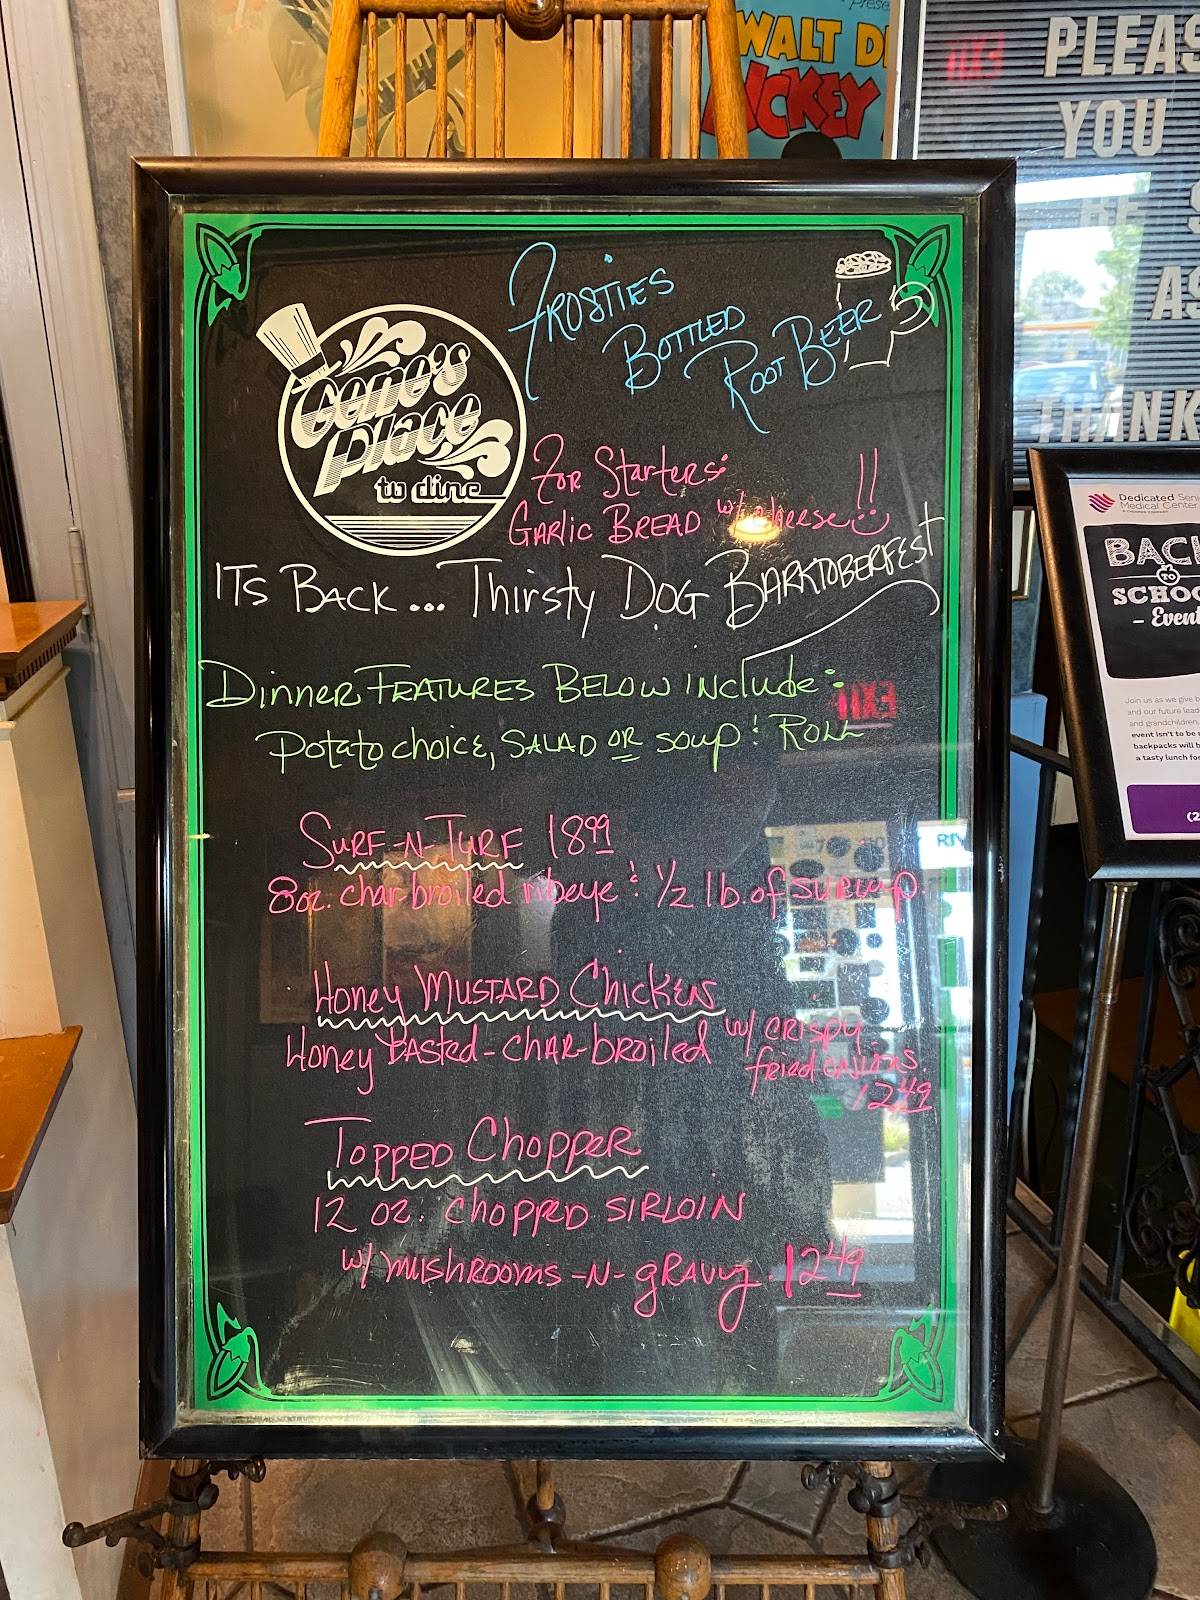 Prese
WALT DI
ICKEY
EXIT
PLEAS
YOU
BE S
AS
THANK
Gene's
Place
to dine
FROSTIES
BOTTLED
ROOT BEER
FOR Starters:
GARLIC BREAD w/ cheese!!
ITS BACK... Thirsty DOG BARKTOBERFEST
DINNER FEATURES BELOW include:
Potato choice, SALAD OR soup & ROLL
EXIT
SURF-N-TURF 18.99
8oz. char-broiled ribeye & 1/2 lb. of shrimp.
Honey MUSTARD Chicken
Honey basted-CHAR-broiled w/ CRISPY
fried onions.
12.49
TOPPED CHOPPER
12 oz. CHOPPED SIRLOIN
w/ MUSHROOMS-N-GRAVY. 12.49
Dedicated Seni
Medical Center
BACK
TO
SCHOO
- Event
Join us as we give b
and our future lead
and grandchildren.
event isn't to be
backpacks will b
a tasty lunch fo
(2